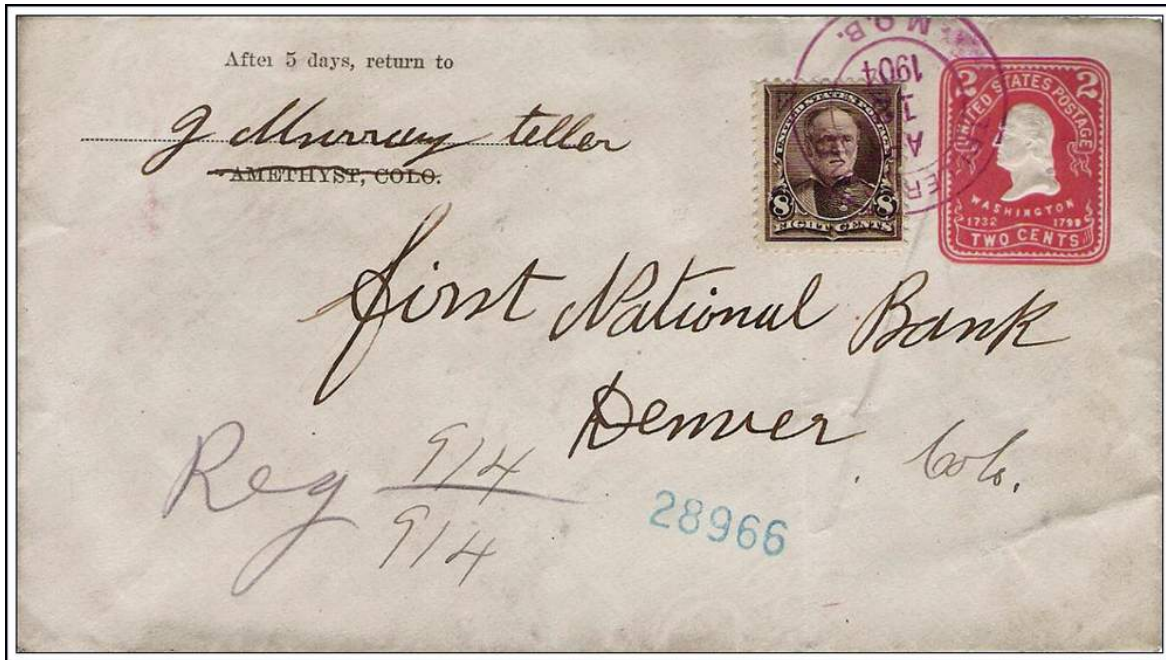 After 5 days, return to
J Murray teller
AMETHYST, COLO.
M.O.B.
1904
UNITED STATES POSTAGE
8 8
EIGHT CENTS
2 2
UNITED STATES POSTAGE
WASHINGTON
1732 1799
TWO CENTS
first National Bank
Denver
Colo.
Reg 914
914
28966